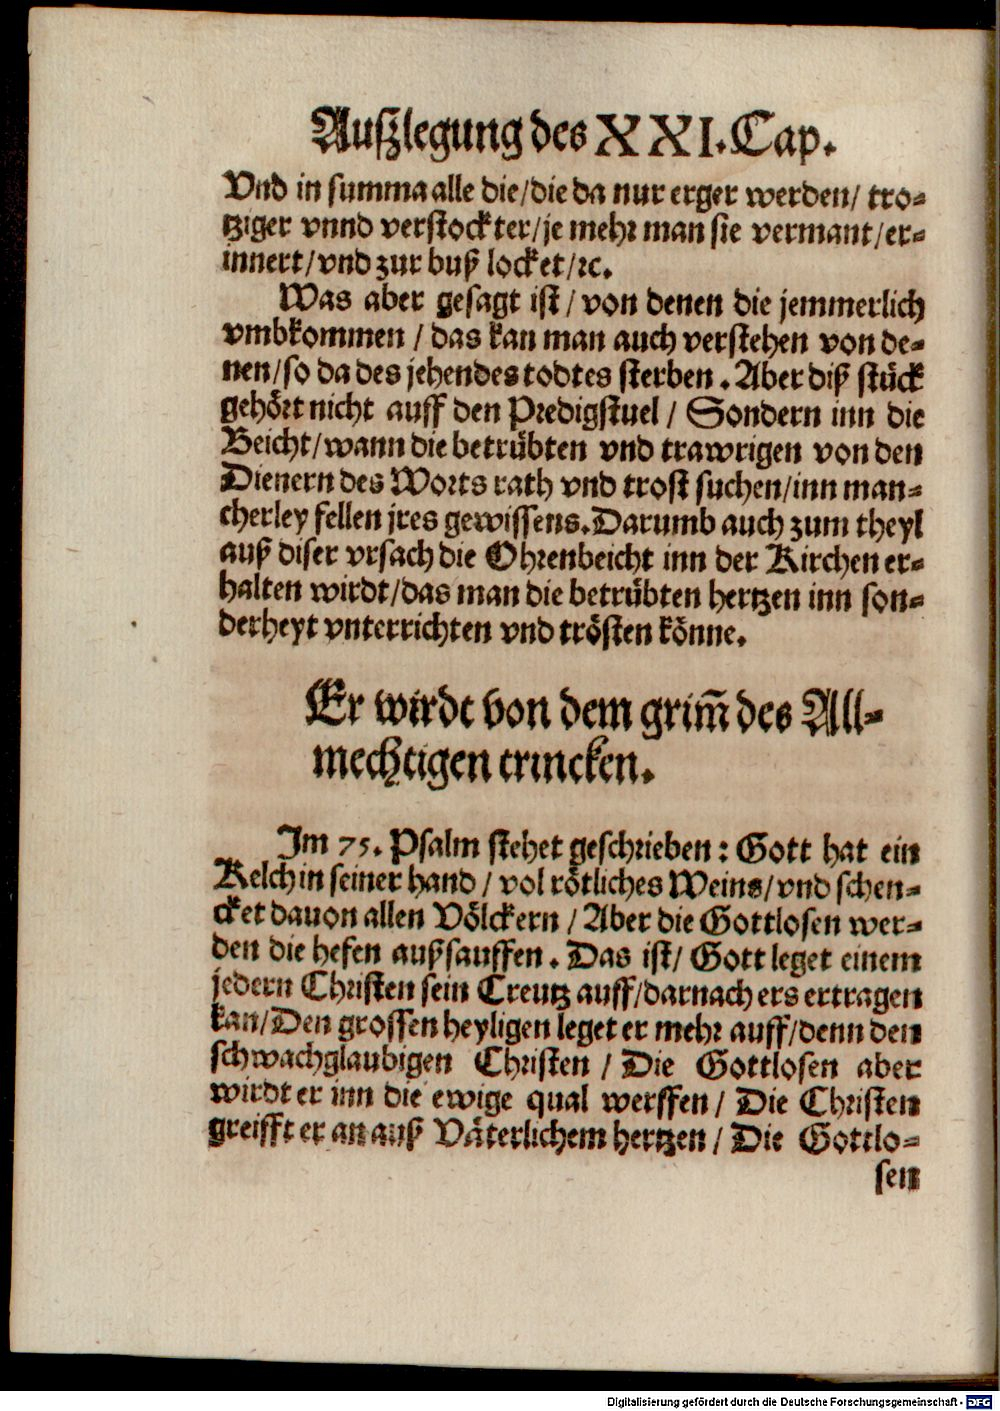 Außlegung des XXI. Cap.
Vnd in summa alle die/die da nur erger werden/ tro⸗
tziger vnnd verstockter/je mehr man sie vermant/er⸗
innert/vnd zur buß locket/ꝛc.
Was aber gesagt ist / von denen die jemmerlich
vmbkommen / das kan man auch verstehen von de⸗
nen/so da des jehendes todtes sterben. Aber diß stück
gehört nicht auff den Predigstuel / Sondern inn die
Beicht/wann die betrübten vnd trawrigen von den
Dienern des Worts rath vnd trost suchen/inn man⸗
cherley fellen jres gewissens. Darumb auch zum theyl
auß diser vrsach die Ohrenbeicht inn der Kirchen er⸗
halten wirdt/das man die betrübten hertzen inn son⸗
derheyt vnterrichten vnd trösten könne.
Er wirdt von dem grim̃ des All⸗
mechtigen trincken.
Im 75. Psalm stehet geschrieben: Gott hat ein
Kelch in seiner hand / vol rötliches Weins/vnd schen⸗
cket dauon allen Völckern / Aber die Gottlosen wer⸗
den die hefen außsauffen. Das ist/ Gott leget einem
jedern Christen sein Creutz auff/darnach ers ertragen
kan/Den grossen heyligen leget er mehr auff/denn den
schwachglaubigen Christen / Die Gottlosen aber
wirdt er inn die ewige qual werffen / Die Christen
greifft er an auß Väterlichem hertzen / Die Gottlo⸗
sen
Digitalisierung gefördert durch die Deutsche Forschungsgemeinschaft - DFG